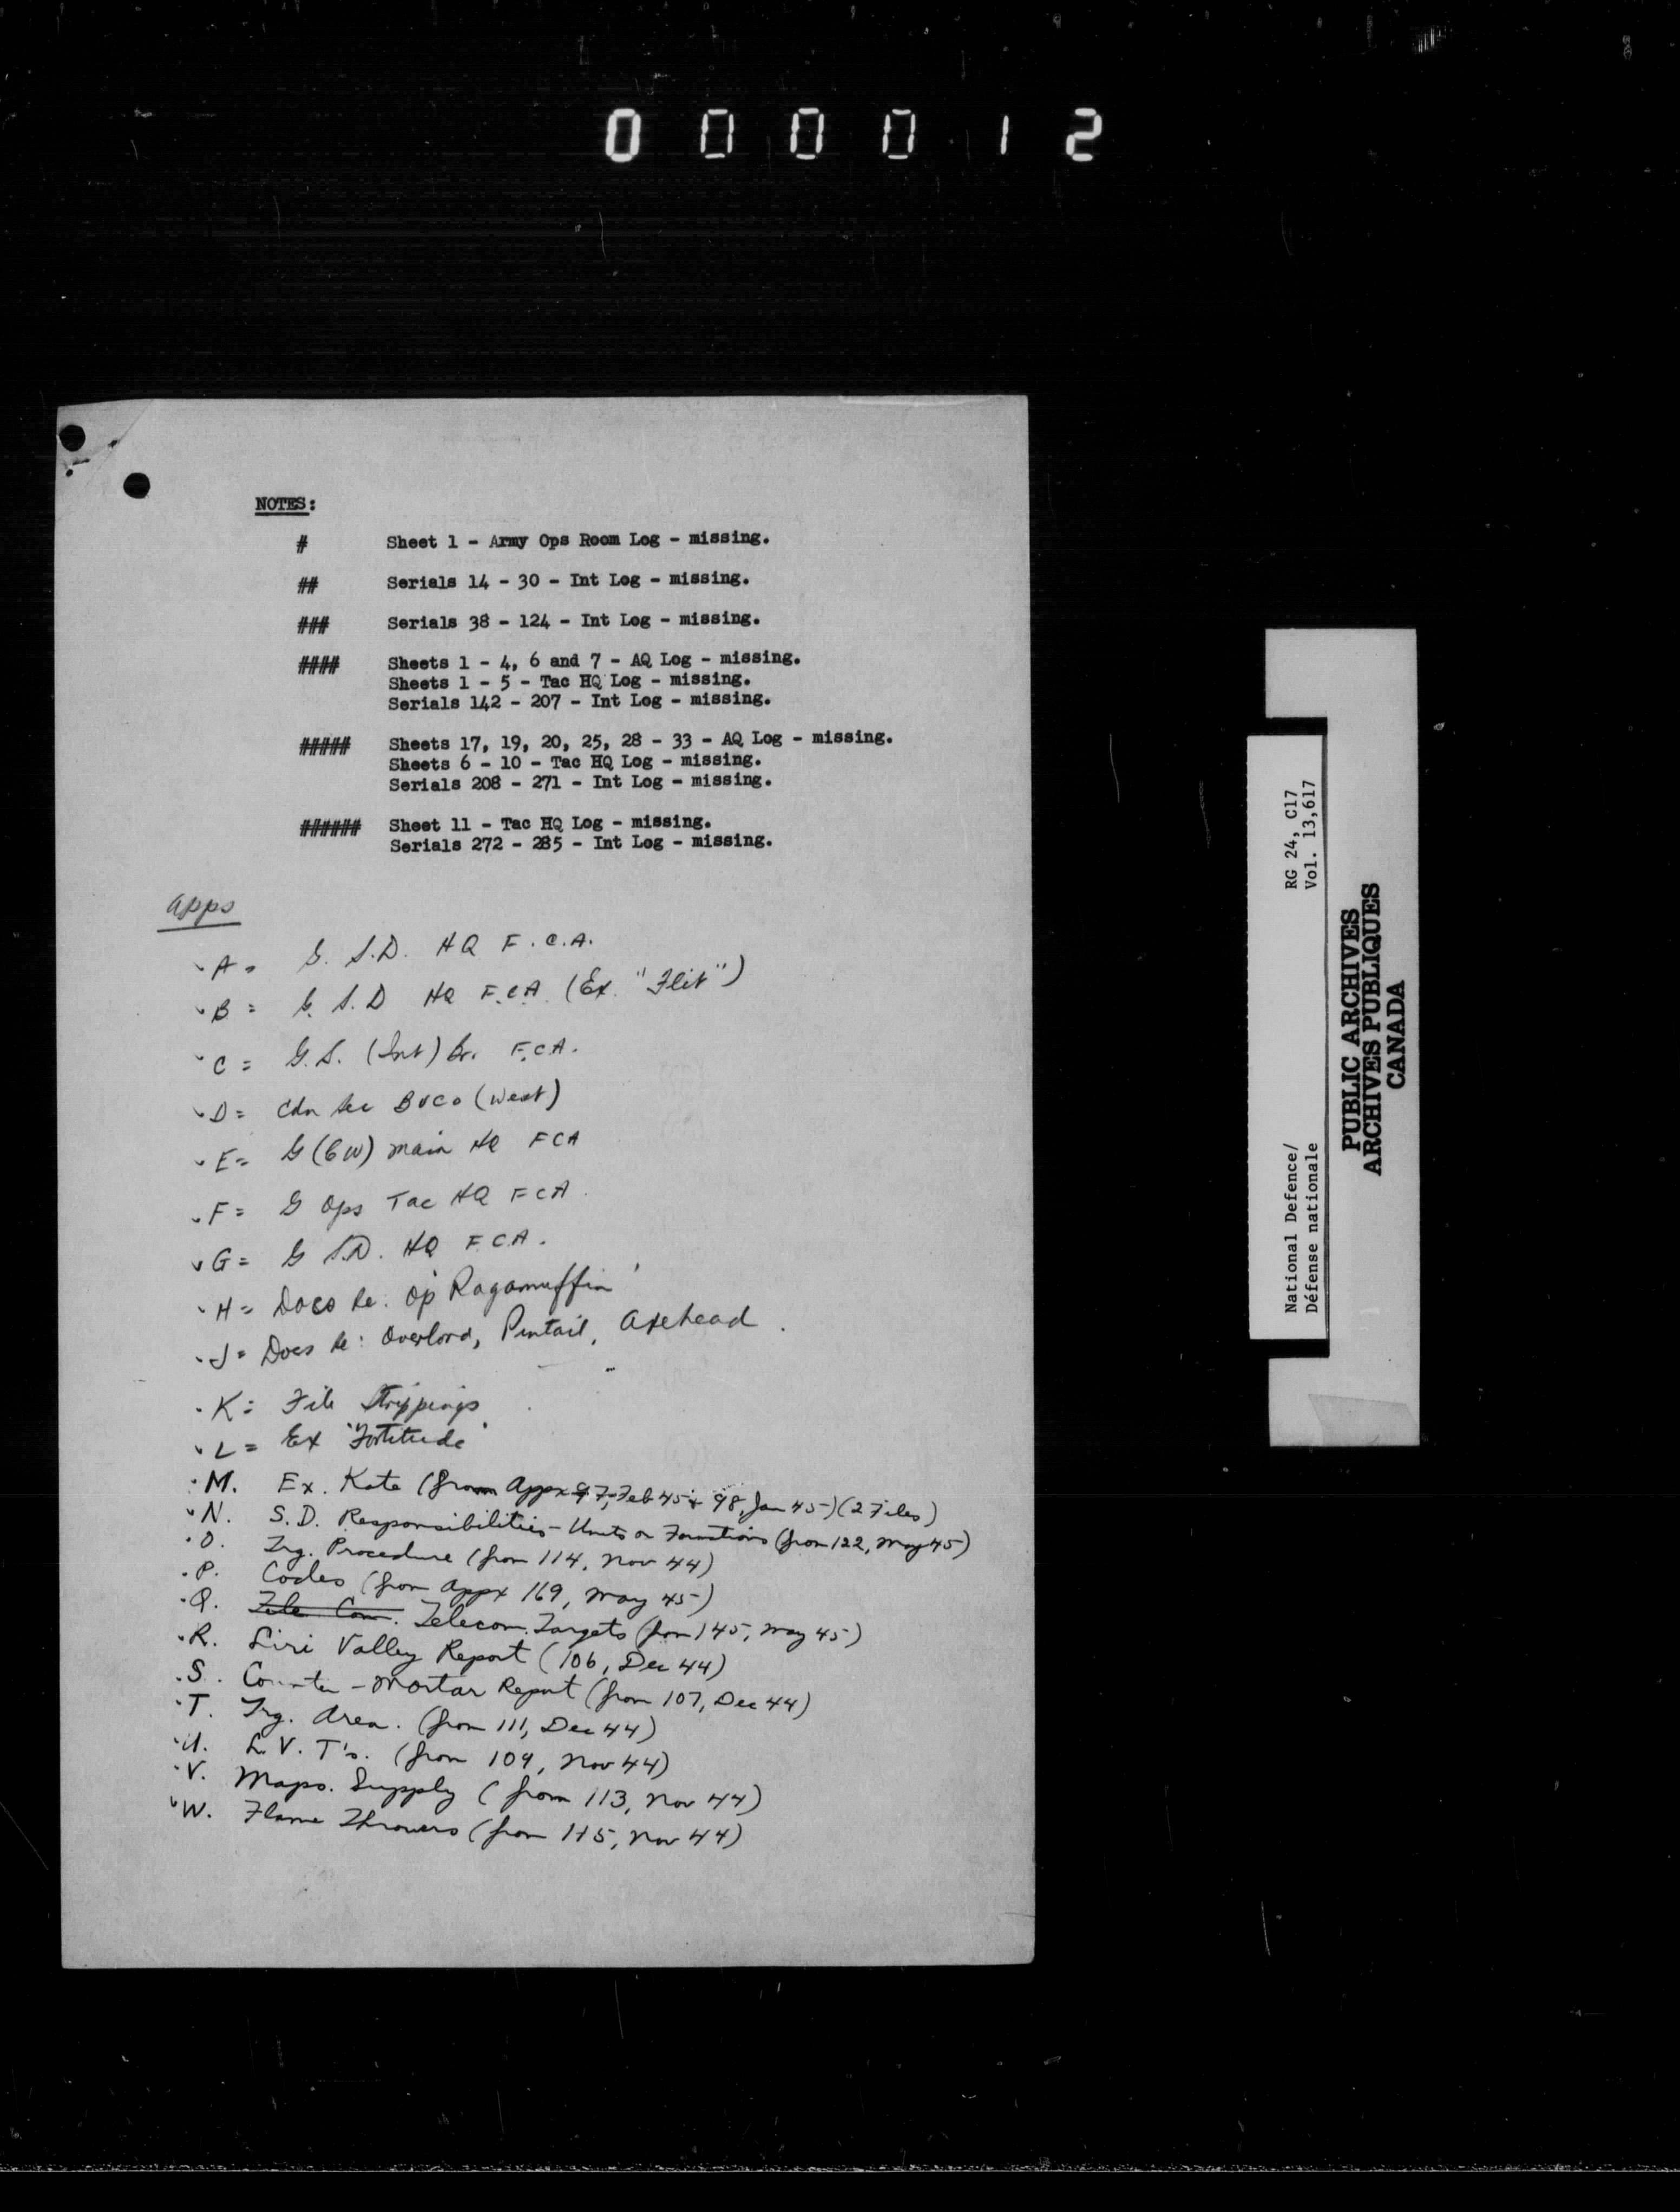 000012
NOTES:
# Sheet 1 - Army Ops Room Log - missing.
## Serials 14 - 30 - Int Log - missing.
### Serials 38 - 124 - Int Log - missing.
#### Sheets 1 - 4, 6 and 7 - AQ Log - missing.
Sheets 1 - 5 - Tac HQ Log - missing.
Serials 142 - 207 - Int Log - missing.
##### Sheets 17, 19, 20, 25, 28 - 33 - AQ Log - missing.
Sheets 6 - 10 - Tac HQ Log - missing.
Serials 208 - 271 - Int Log - missing.
###### Sheet 11 - Tac HQ Log - missing.
Serials 272 - 285 - Int Log - missing.
Apps
A = G. S.D. HQ F.C.A.
B = G. S.D HQ F.C.A. (Ex. "Flit")
C = G.S. (Int) Br. F.C.A.
D = Cdn Sec BUCO (West)
E = G (CW) main HQ FCA
F = G Ops Tac HQ FCA
G = G S.D. HQ F.C.A.
H = Docs Re. Op 'Ragamuffin'
J = Docs Re: Overlord, Pintail, Axehead.
K = File Strippings
L = Ex 'Fortitude'
M. Ex. Kate (from Appx 97, Feb 45 + 98, Jan 45) (2 Files)
N. S.D. Responsibilities - Units or Formations (from 122, May 45)
O. Trg. Procedure (from 114, Nov 44)
P. Codes (from Appx 169, May 45)
Q. Tele Com. Telecom. Targets (from 145, May 45)
R. Liri Valley Report (106, Dec 44)
S. Counter-Mortar Report (from 107, Dec 44)
T. Trg. Area. (from 111, Dec 44)
U. L.V.T's. (from 109, Nov 44)
V. Maps. Supply (from 113, Nov 44)
W. Flame Throwers (from 115, Nov 44)
National Defence/ RG 24, C17
Défense nationale Vol. 13,617
PUBLIC ARCHIVES
ARCHIVES PUBLIQUES
CANADA